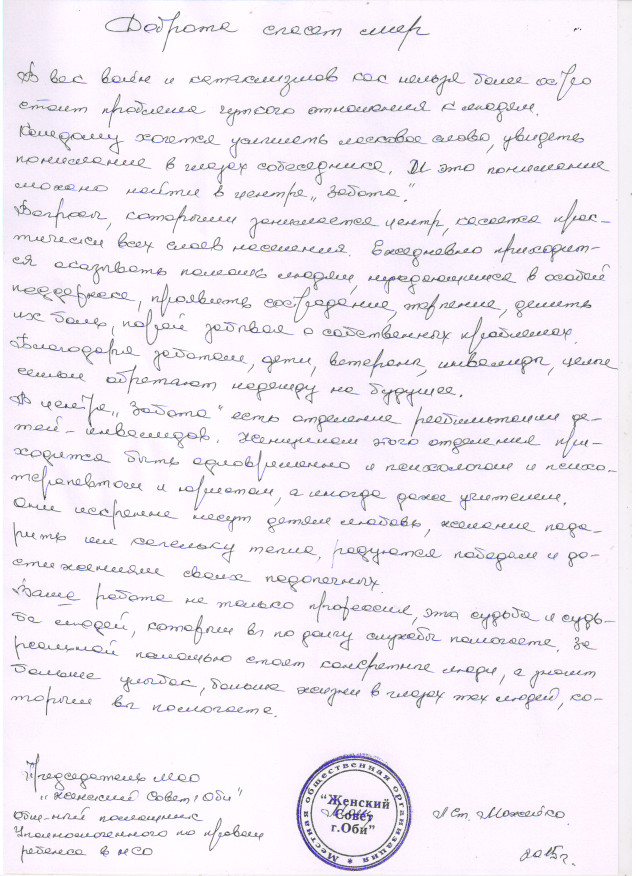 Доброта спасет мир
В век войн и катаклизмов как нельзя более остро
стоит проблема чуткого отношения к людям.
Каждому хочется услышать ласковое слово, увидеть
понимание в глазах собеседника. И это понимание
можно найти в центре „Забота".
Вопросы, которыми занимается центр, касается прак-
тически всех слоев населения. Ежедневно приходит-
ся оказывать помощь людям, нуждающимся в особой
поддержке, проявить сострадание, терпение, делить
их боль, порой забывая о собственных проблемах.
Благодаря заботам, дети, ветераны, инвалиды, целые
семьи обретают надежду на будущее.
В центре „Забота" есть отделение реабилитации де-
тей-инвалидов. Женщинам этого отделения при-
ходится быть одновременно и психологом и психо-
терапевтом и юристом, а иногда даже учителем.
Они искренне несут детям любовь, желание пода-
рить им капельку тепла, радуются победам и до-
стижениям своих подопечных.
Ваша работа не только профессия, эта судьба и судь-
ба людей, которым вы по долгу службы помогаете. За
реальной помощью стоят конкретные люди, а значит
больше улыбок, больше жизни в глазах тех людей, ко-
торым вы помогаете.
Председатель МОО
„Женский Совет г. Оби"
Общ-ный помощник
Уполномоченного по правам
ребенка в НСО
Местная общественная организация
"Женский
Совет
г.Оби"
Л Ст. Можейко.
2015 г.